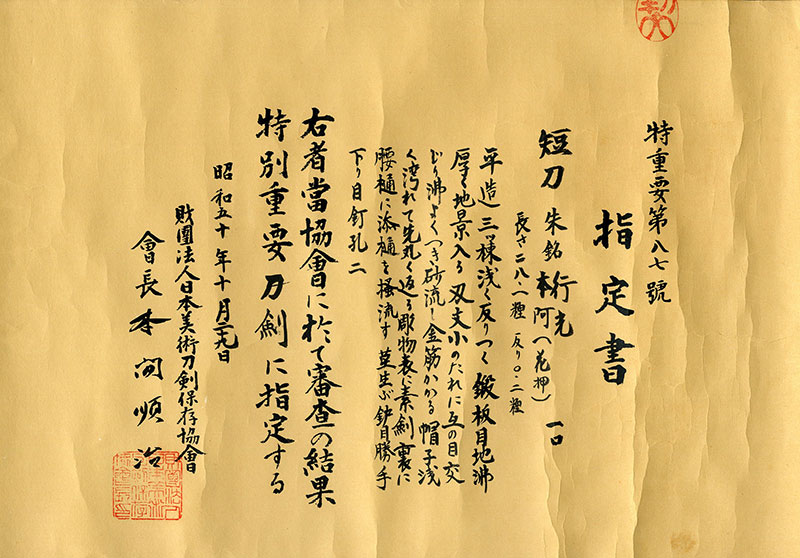 特重要第八七號
指定書
短刀 朱銘 行光
本阿(花押) 一口
長さ二八・一糎 反り〇・二糎
平造三棟浅く反りつく 鍛板目地沸
厚く地景入る 刃文小のたれに互の目交
じり沸よくつき砂流し金筋かかる 帽子浅
く湾れて先丸く返る彫物表に素剣裏に
腰樋に添樋を掻流す 茎生ぶ鈩目勝手
下り目釘孔二
右者當協會に於て審査の結果
特別重要刀剣に指定する
昭和五十年十月二十九日
財團法人日本美術刀剣保存協會
會長 本間順治